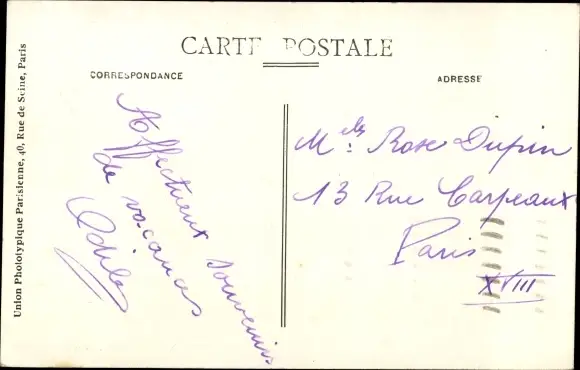 CARTE POSTALE
CORRESPONDANCE
ADRESSE
Affectueux souvenirs
de vacances
Odile
Melle Rose Dupin
13 Rue Carpeaux
Paris
XVIII
Union Phototypique Parisienne, 40, Rue de Seine, Paris